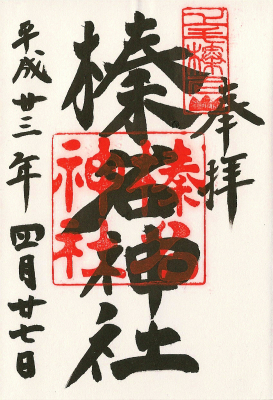 奉拝
榛名神社
平成廿三年四月廿七日
榛名
神社